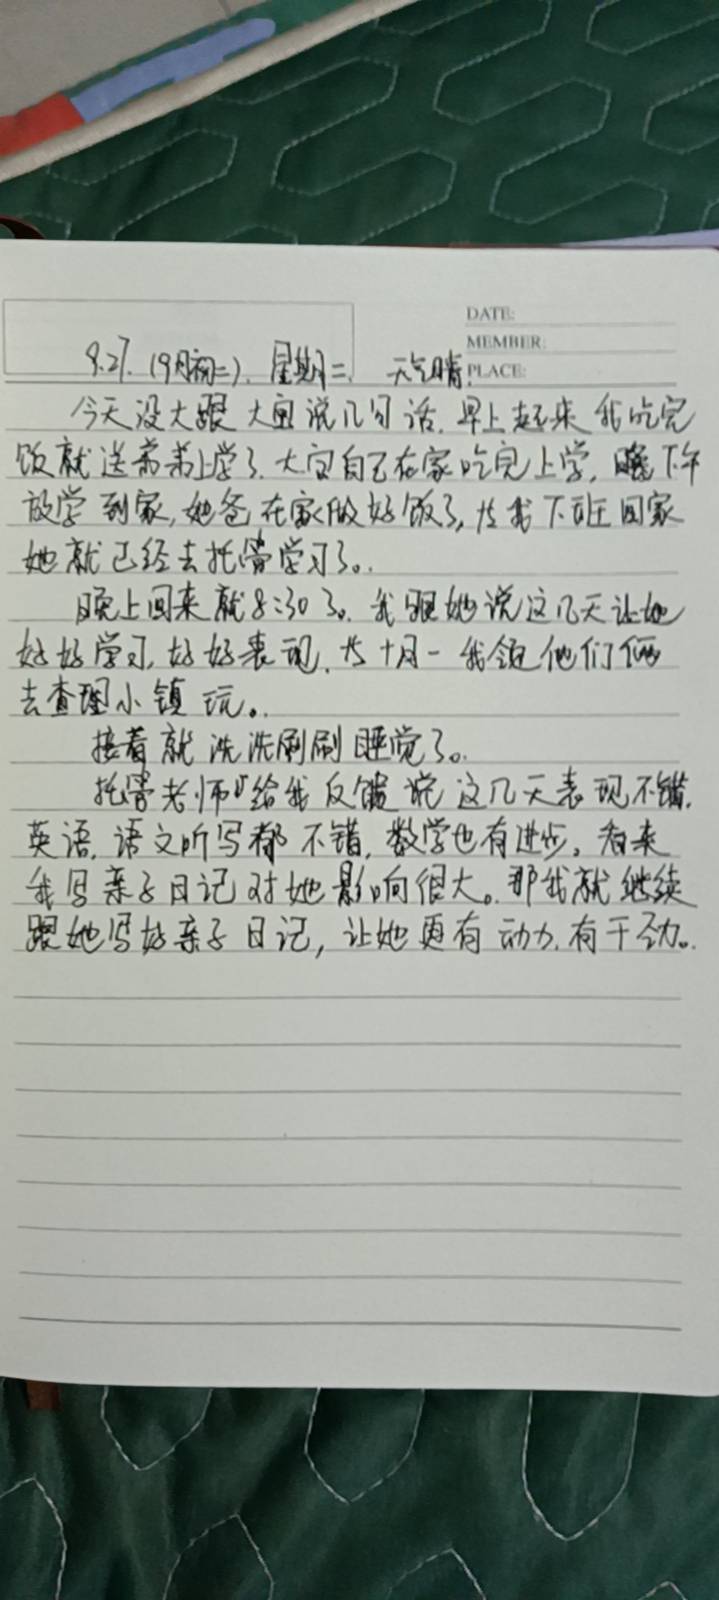 DATE:
MEMBER:
PLACE:
9.27.(9月初二).星期二. 天气晴.
今天没大跟大宝说几句话.早上起来我吃完
饭就送弟弟上学了.大宝自己在家吃完上学.下午
放学到家,她爸在家做好饭了,等我下班回家
她就已经去托管学习了。
晚上回来就8:30了。我跟她说这几天让她
好好学习,好好表现.等十月一我领他们俩
去查理小镇玩。
接着就洗洗刷刷睡觉了。
托管老师给我反馈说这几天表现不错.
英语.语文听写都不错,数学也有进步。看来
我写亲子日记对她影响很大。那我就继续
跟她写好亲子日记,让她更有动力.有干劲。